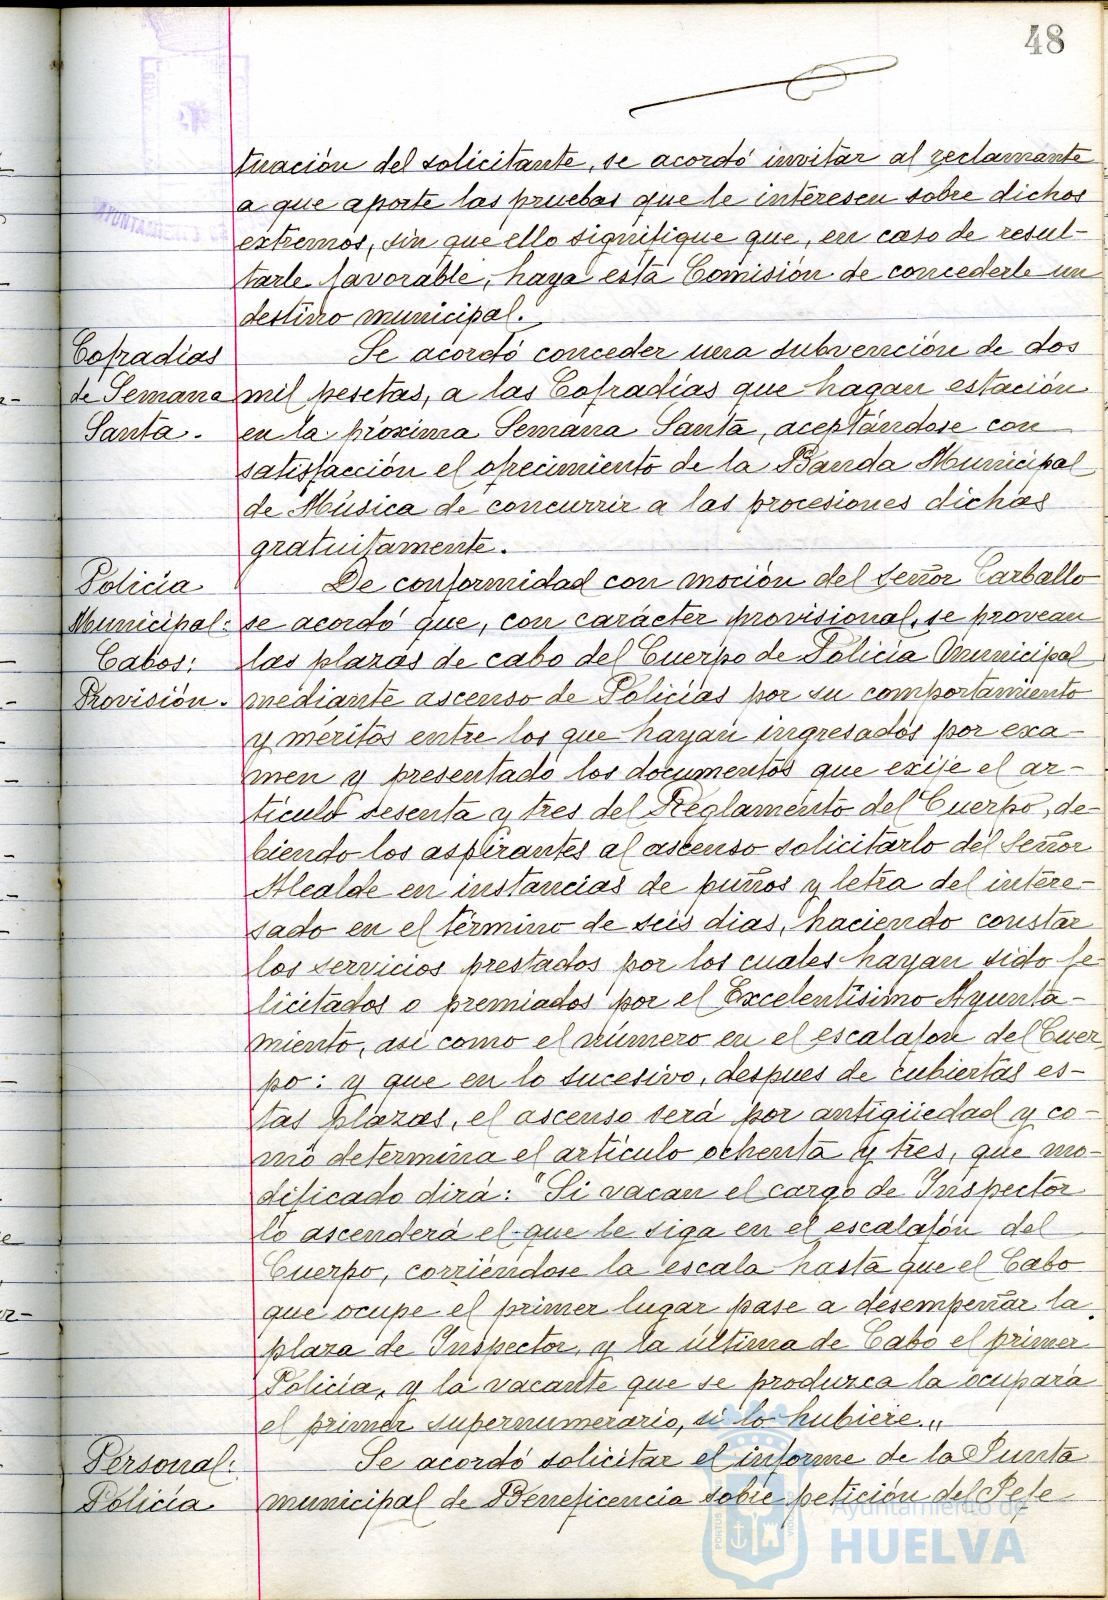 48
tuación del solicitante, se acordó invitar al reclamante
a que aporte las pruebas que le interesen sobre dichos
extremos, sin que ello signifique que, en caso de resul-
tarle favorable, haya esta Comisión de concederle un
destino municipal.
Cofradías
de Semana
Santa.
Se acordó conceder una subvención de dos
mil pesetas, a las Cofradías que hagan estación
en la próxima Semana Santa, aceptándose con
satisfacción el ofrecimiento de la Banda Municipal
de Música de concurrir a las procesiones dichas
gratuitamente.
Policía
Municipal:
Cabos:
Provisión.
De conformidad con moción del Señor Carballo
se acordó que, con carácter provisional, se provean
las plazas de cabo del Cuerpo de Policía Municipal
mediante ascenso de Policías por su comportamiento
y méritos entre los que hayan ingresados por exa-
men y presentado los documentos que exije el ar-
tículo sesenta y tres del Reglamento del Cuerpo, de-
biendo los aspirantes al ascenso solicitarlo del Señor
Alcalde en instancias de puños y letra del intere-
sado en el término de seis dias, haciendo constar
los servicios prestados por los cuales hayan sido fe-
licitados o premiados por el Excelentísimo Ayunta-
miento, así como el número en el escalafon del Cuer
po: y que en lo sucesivo, despues de cubiertas es-
tas plazas, el ascenso será por antigüedad y co-
mo determina el artículo ochenta y tres, que mo-
dificado dirá: "Si vacan el cargo de Inspector
lo ascenderá el que le siga en el escalafón del
Cuerpo, corriéndose la escala hasta que el Cabo
que ocupe el primer lugar pase a desempeñar la
plaza de Inspector, y la última de Cabo el primer
Policía, y la vacante que se produzca la ocupará
el primer supernumerario, si lo hubiere."
Personal:
Policía
Se acordó solicitar el informe de la Junta
municipal de Beneficencia sobre petición del Jefe
Ayuntamiento de
HUELVA